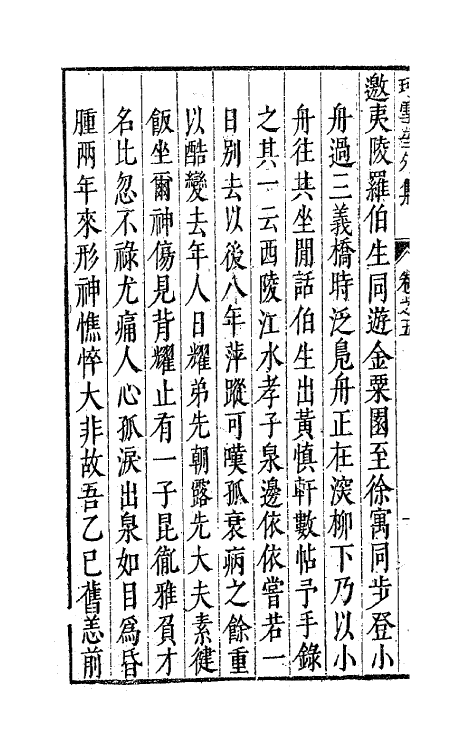 珂雪齋外集 卷之五
邀夷陵羅伯生同遊金粟園至徐寓同步登小
舟過三義橋時泛鳬舟正在深柳下乃以小
舟往共坐閒話伯生出黃慎軒數帖予手錄
之其一云西陵江水孝子泉邊依依嘗若一
日別去以後八年萍蹤可嘆孤衰病之餘重
以酷變去年人日耀弟先朝露先大夫素健
飯坐爾神傷見背耀止有一子昆徹雅負才
名比忽不祿尤痛人心孤淚出泉如目爲昏
腫兩年來形神憔悴大非故吾乙巳舊恙前